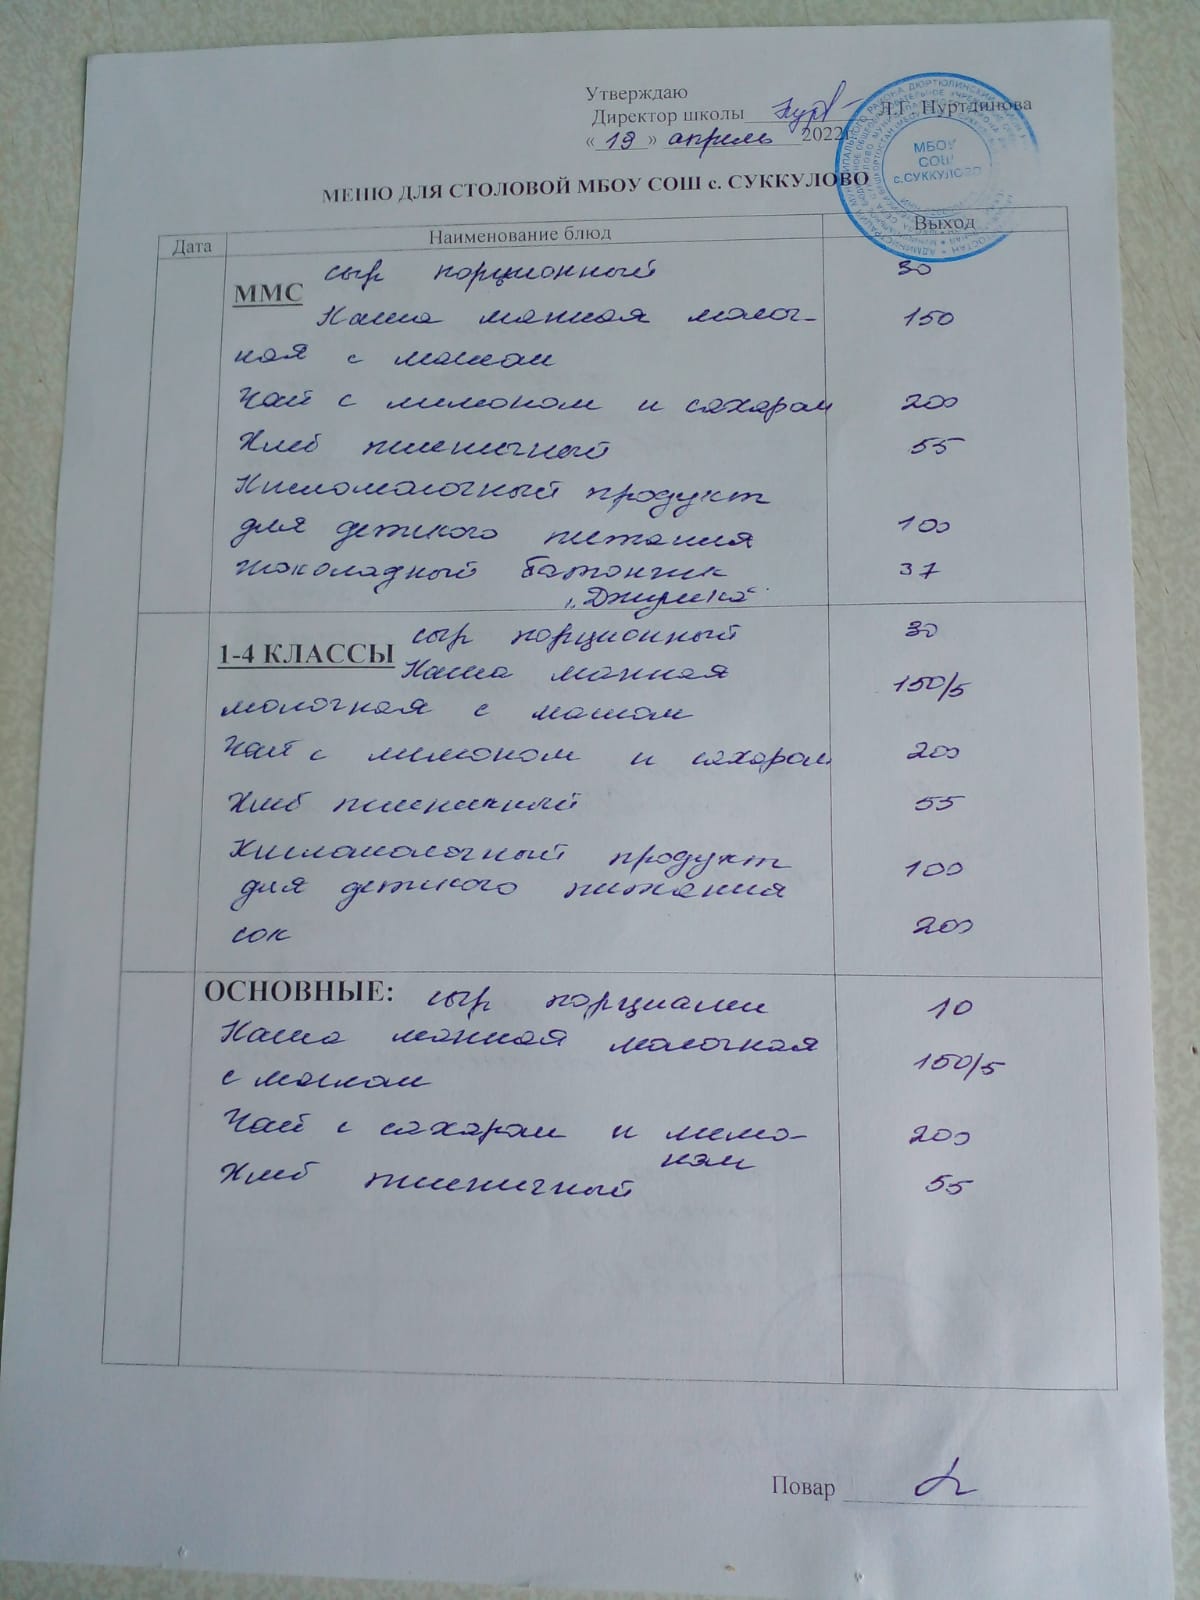 Утверждаю
Директор школы Л.Г. Нуртдинова
« 19 » апрель 2022г
МБОУ
СОШ
с.СУККУЛОВО
МЕНЮ ДЛЯ СТОЛОВОЙ МБОУ СОШ с. СУККУЛОВО
Дата Наименование блюд Выход
ММС сыр порционный 30
Каша манная молоч- 150
ная с маслом
Чай с лимоном и сахаром 200
Хлеб пшеничный 55
Кисломолочный продукт
для детского питания 100
шоколадный батончик 37
1-4 КЛАССЫ сыр порционный 30
Каша манная 150/5
молочная с маслом
Чай с лимоном и сахаром 200
Хлеб пшеничный 55
Кисломолочный продукт
для детского питания 100
сок 200
ОСНОВНЫЕ: сыр порциями 10
Каша манная молочная
с маслом 150/5
Чай с сахаром и лимо- 200
ном
Хлеб пшеничный 55
Повар